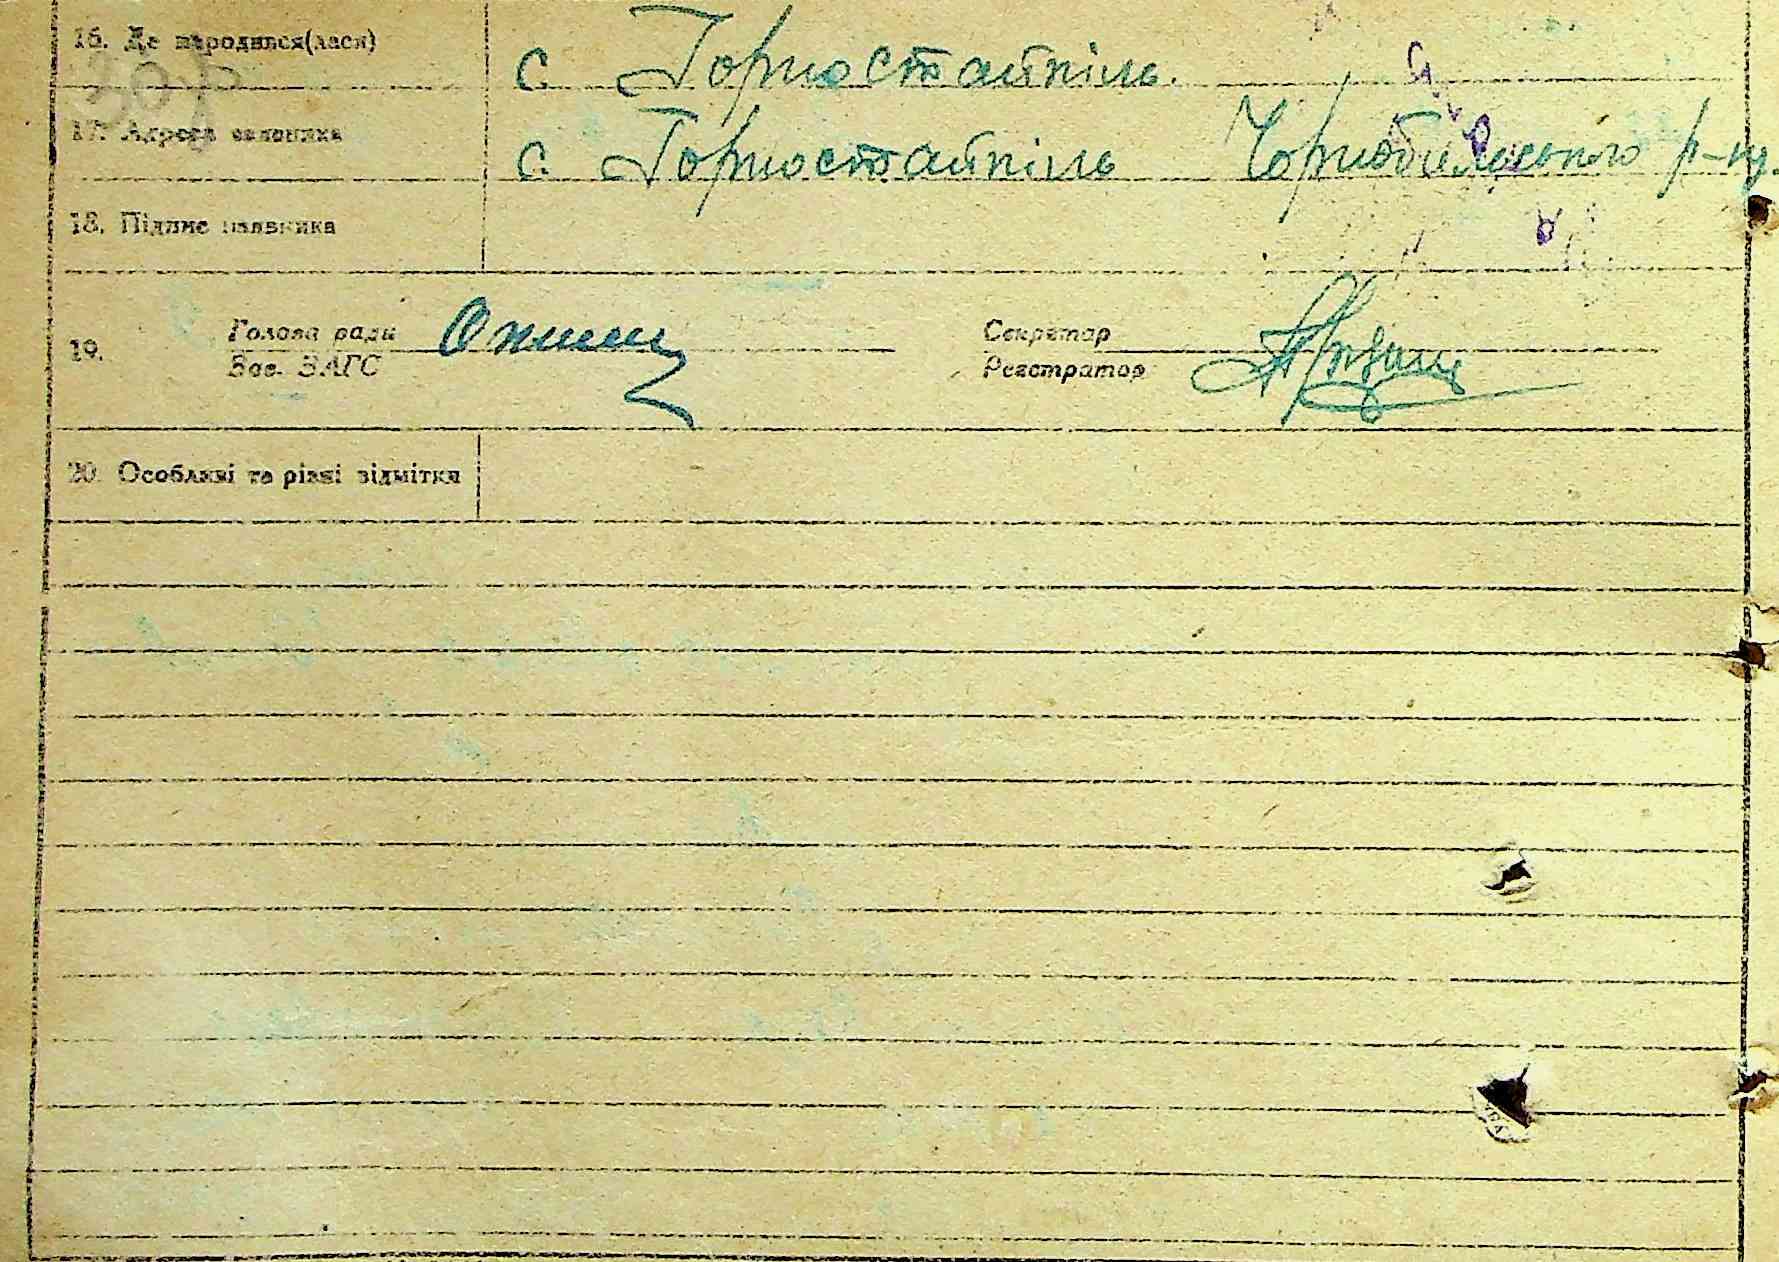 16. Де народився(лася) с. Горностайпіль.
17. Адреса заявника с. Горностайпіль Чорнобильського р-ну.
18. Підпис заявника
19. Голова ради Секретар
Зав. ЗАГС Реєстратор
20. Особливі та різні відмітки